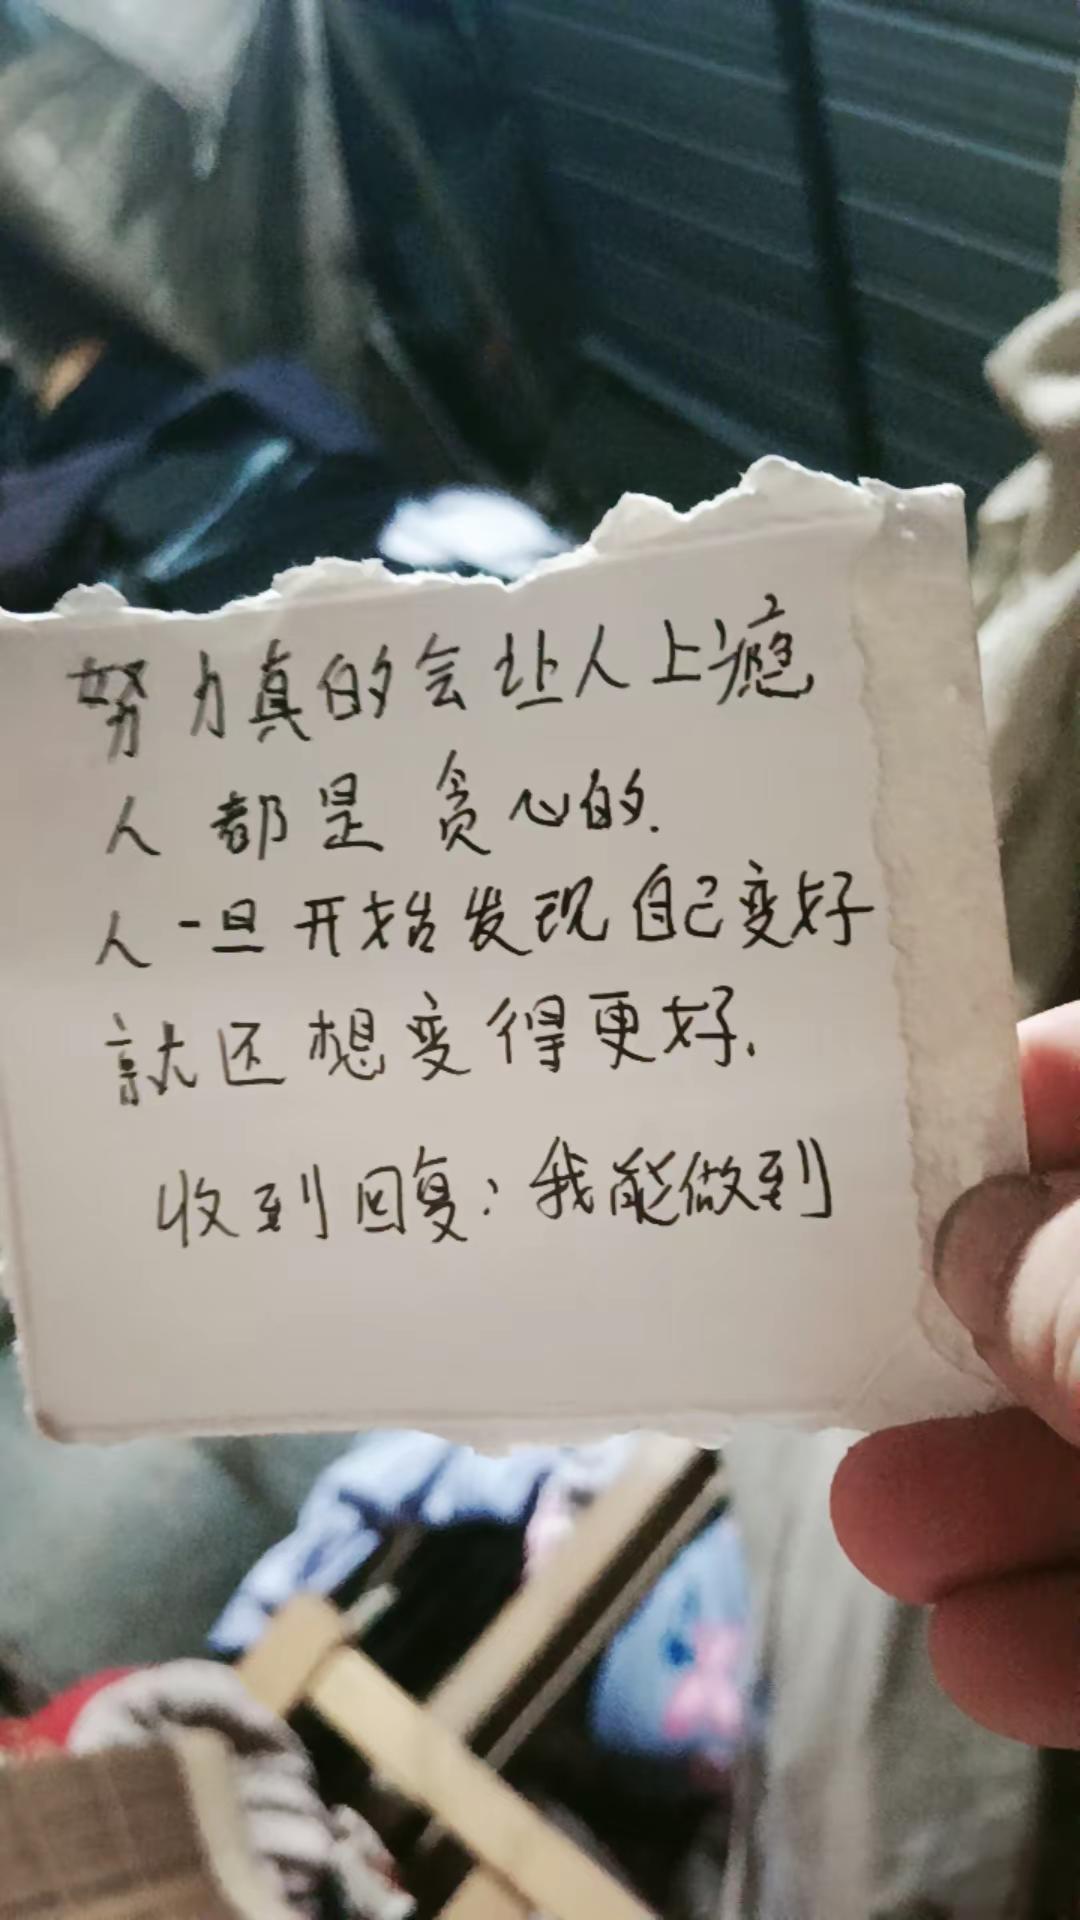 努力真的会让人上瘾
人都是贪心的.
人一旦开始发现自己变好
就还想变得更好.
收到回复:我能做到